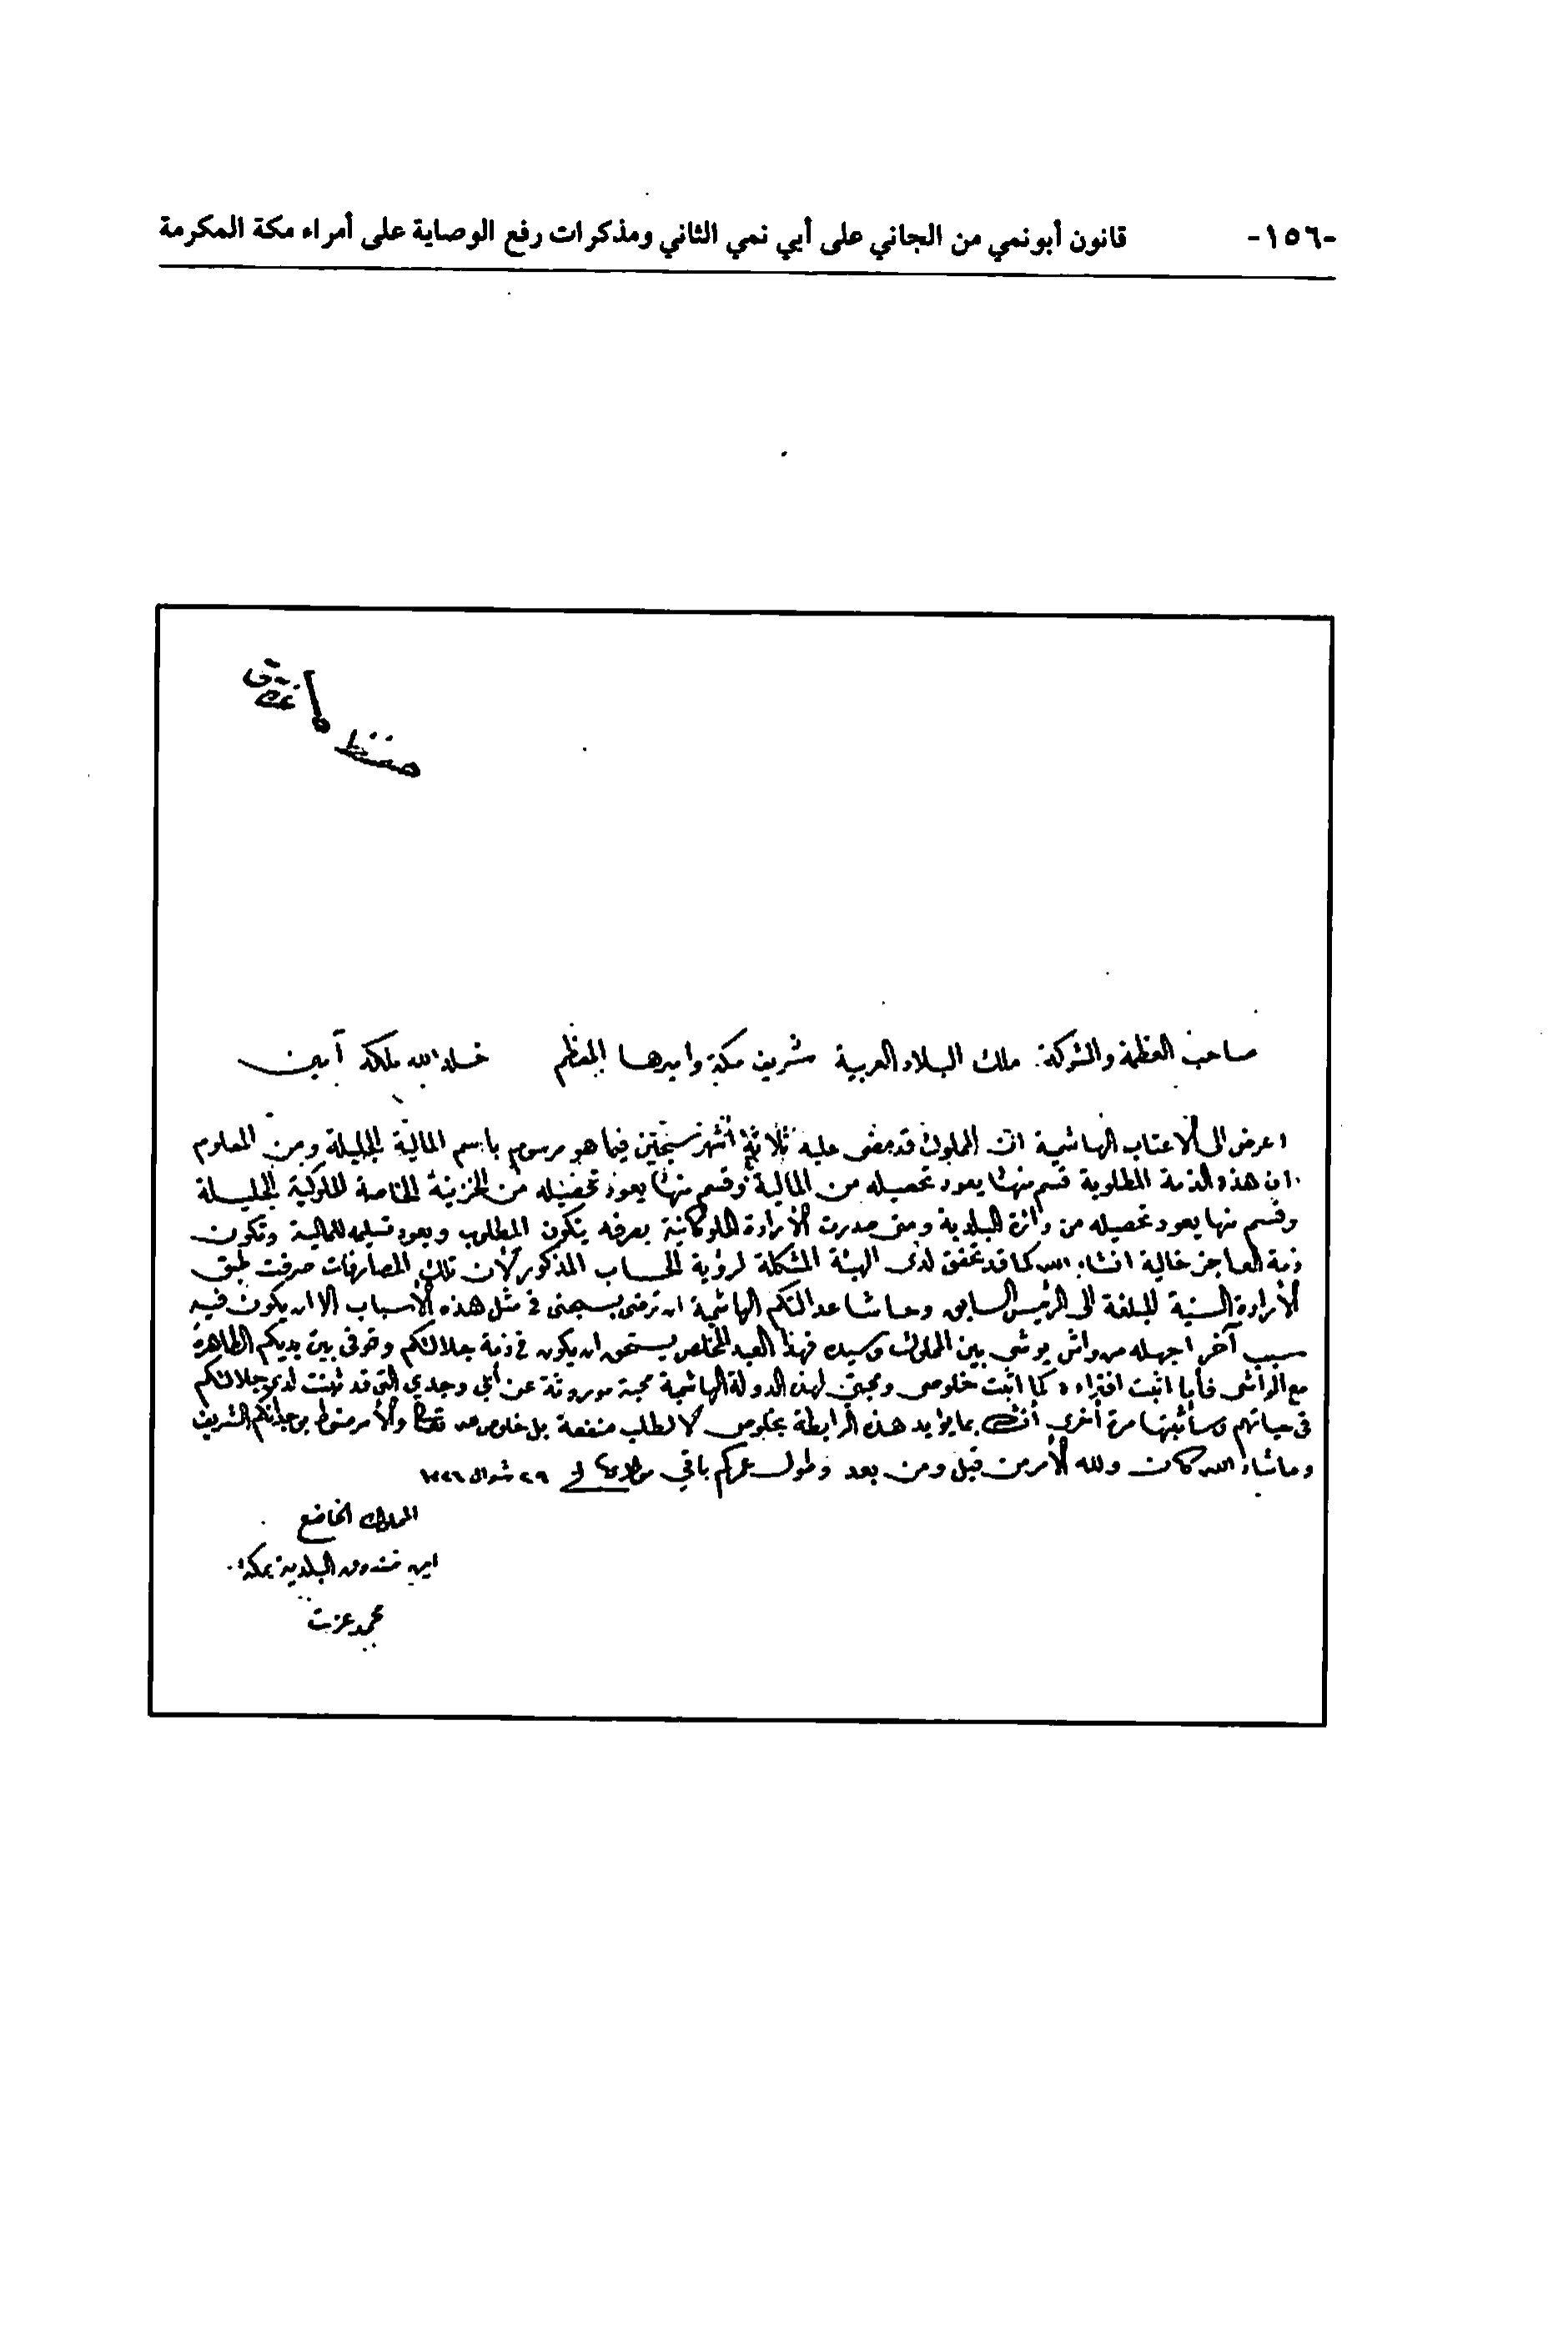 -١٥٦- قانون أبونمي من الجاني على أبي نمي الثاني ومذكرات رفع الوصاية على أمراء مكة المكرمة
صاحب العظمة والشوكة: ملك البلاد العربية شريف مكة واميرها المعظم خلد الله ملكه آمين
اعرض الى الاعتاب الهاشمية ان المملوك قد مضى عليه ثلاثة أشهر سجين فيما هو مرسوم باسم المالية الجليلة ومن المعلوم
ان هذه الذمة المطلوبة قسم منها يعود تحصيله من المالية وقسم منها يعود تحصيله من الخزينة الخاصة الملوكية الجليلة
وقسم منها يعود تحصيله من دائرة البلدية ومتى صدرت الأرادة الملوكانية بصرفه يكون المطلوب ويعود تسليمه للمالية وتكون
ذمة العاجز خالية انشاء الله كما قد تحقق لدى الهيئة المشكلة لرؤية الحساب المذكور لأن تلك المصارفات صرفت طبق
الأرادة السنية المبلغة الى الرئيس السابق وحاشا عدالتكم الهاشمية ان ترضى بسجنى في مثل هذه الأسباب الا ان يكون فيه
سبب آخر اجهله من واش يوشى بين المملوك وسيده فهذا العبد المخلص يستحق ان يكون في ذمة جلالتكم وقوفى بين يديكم الطاهرة
مع الواشى فأما اثبت افتراءه كما اثبت خلوصى ومحبتى لهذه الدولة الهاشمية محبة موروثة عن أبي وجدي التى قد ثبتت لدى جلالتكم
في حياتهم وسأثبتها مرة أخرى بما يؤيد هذه الرابطة بخلوص لا لطلب منفعة بل خلوص والأمر منوط الشريف
وماشاء الله كان ولله الأمر من قبل ومن بعد وطول عمركم باقي في ٢٩ شوال
المملوك الخاضع
امين صندوق البلدية بمكة
محمد عزت